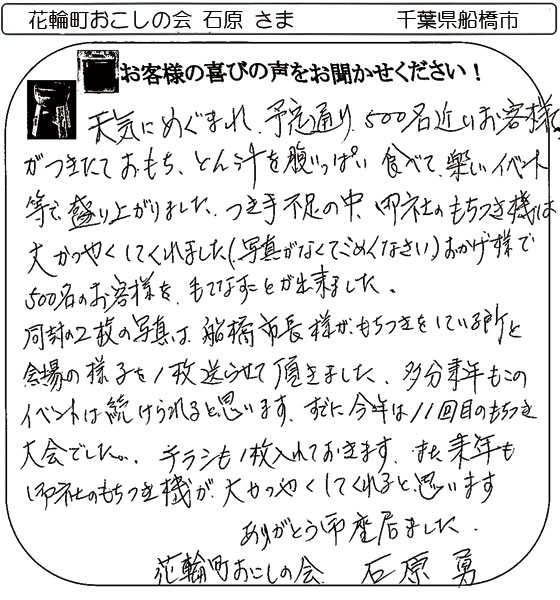 花輪町おこしの会 石原 さま 千葉県船橋市
お客様の喜びの声をお聞かせください！
天気にめぐまれ、予定通り、500名近いお客様
がつきたておもち、とん汁を腹いっぱい 食べて、楽しいイベント
等で盛り上がりました、つき手不足の中、御社のもちつき機は
大かつやくしてくれました(写真がなくてごめんなさい)おかげ様で
500名のお客様を、もてなすことが出来ました。
同封の2枚の写真は、船橋市長様がもちつきをしている所と
会場の様子を1枚送らせて頂きました、多分来年もこの
イベントは続けられると思います、すでに今年は11回目のもちつき
大会でした。、チラシも1枚入れておきます、また来年も
御社のもちつき機が、大かつやくしてくれると思います
ありがとう御座居ました.
花輪町おこしの会 石原 勇